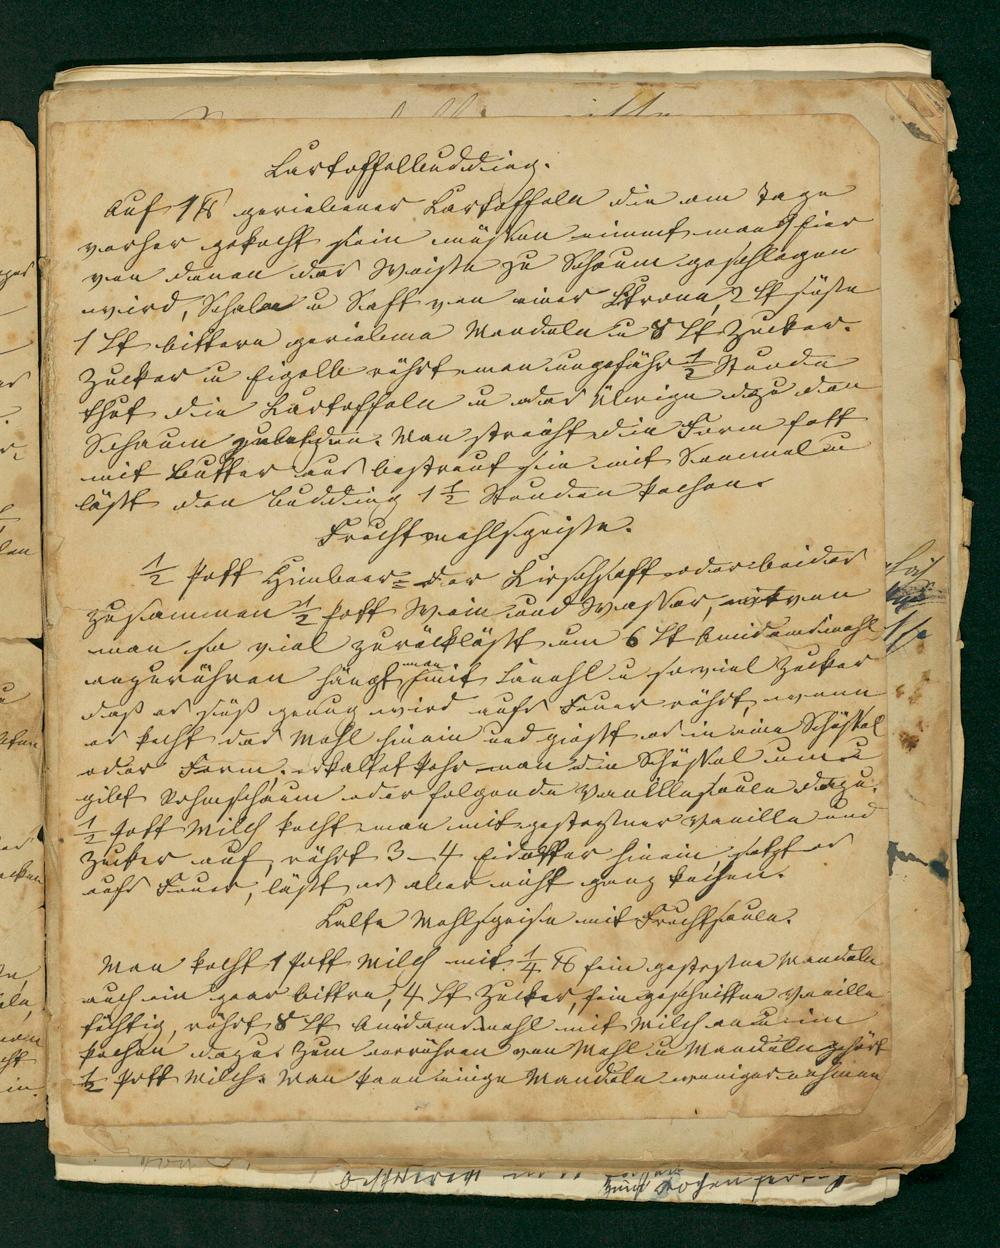 Kartoffelbudding.
Auf 1 ℔ geriebener Kartoffeln die am Tage
vorher gekocht sein müssen nimmt man 8 Eier
von denen das Weiße zu Schaum geschlagen
wird, Schale u Saft von einer Citrone, 2 Lt süße
1 Lt bittere geriebene Mandeln u 8 Lt Zucker.
Zucker u Eigelb rührt man ungefähr ½ Stunde
thut die Kartoffeln u das Übrige dazu den
Schaum Man streicht die Form fett
mit Butter aus bestreut sie mit Semmel u
läßt den Budding 1 ½ Stunden kochen.
Fruchtmehlspeise.
½ Pott Himbeer= oder Kirschsaft oder beides
zusammen ½ Pott Wein und Wasser, von
man so viel zurückläßt um 6 Lt Amidammehl
anzurühren, man mit Canehl u soviel Zucker
daß es süß genug wird aufs Feuer rührt, wenn
es kocht das Mehl hinein und gießt es in eine Schüssel
oder Form; erkaltet man die Schüssel um u
gibt Rahmschaum oder folgende Vanillesauce dazu.
½ Pott Milch kocht man mit gestoßner Vanille und
Zucker auf, rührt 3–4 Eidotter hinein, setzt es
aufs Feuer, läßt es aber nicht ganz kochen.
Kalte Mehlspeise mit Fruchtsauce.
Man kocht 1 Pott Milch mit ¼ ℔ fein gestoßne Mandeln
auch ein paar bittre, 4 Lt Zucker, fein geschnitten Vanille
tüchtig, rührt 8 Lt Amidammehl mit Milch an u im
Kochen dazu. Zum anrühren von Mehl u Mandeln gehört
½ Pott Milch. Man kann einige Mandeln weniger nehmen